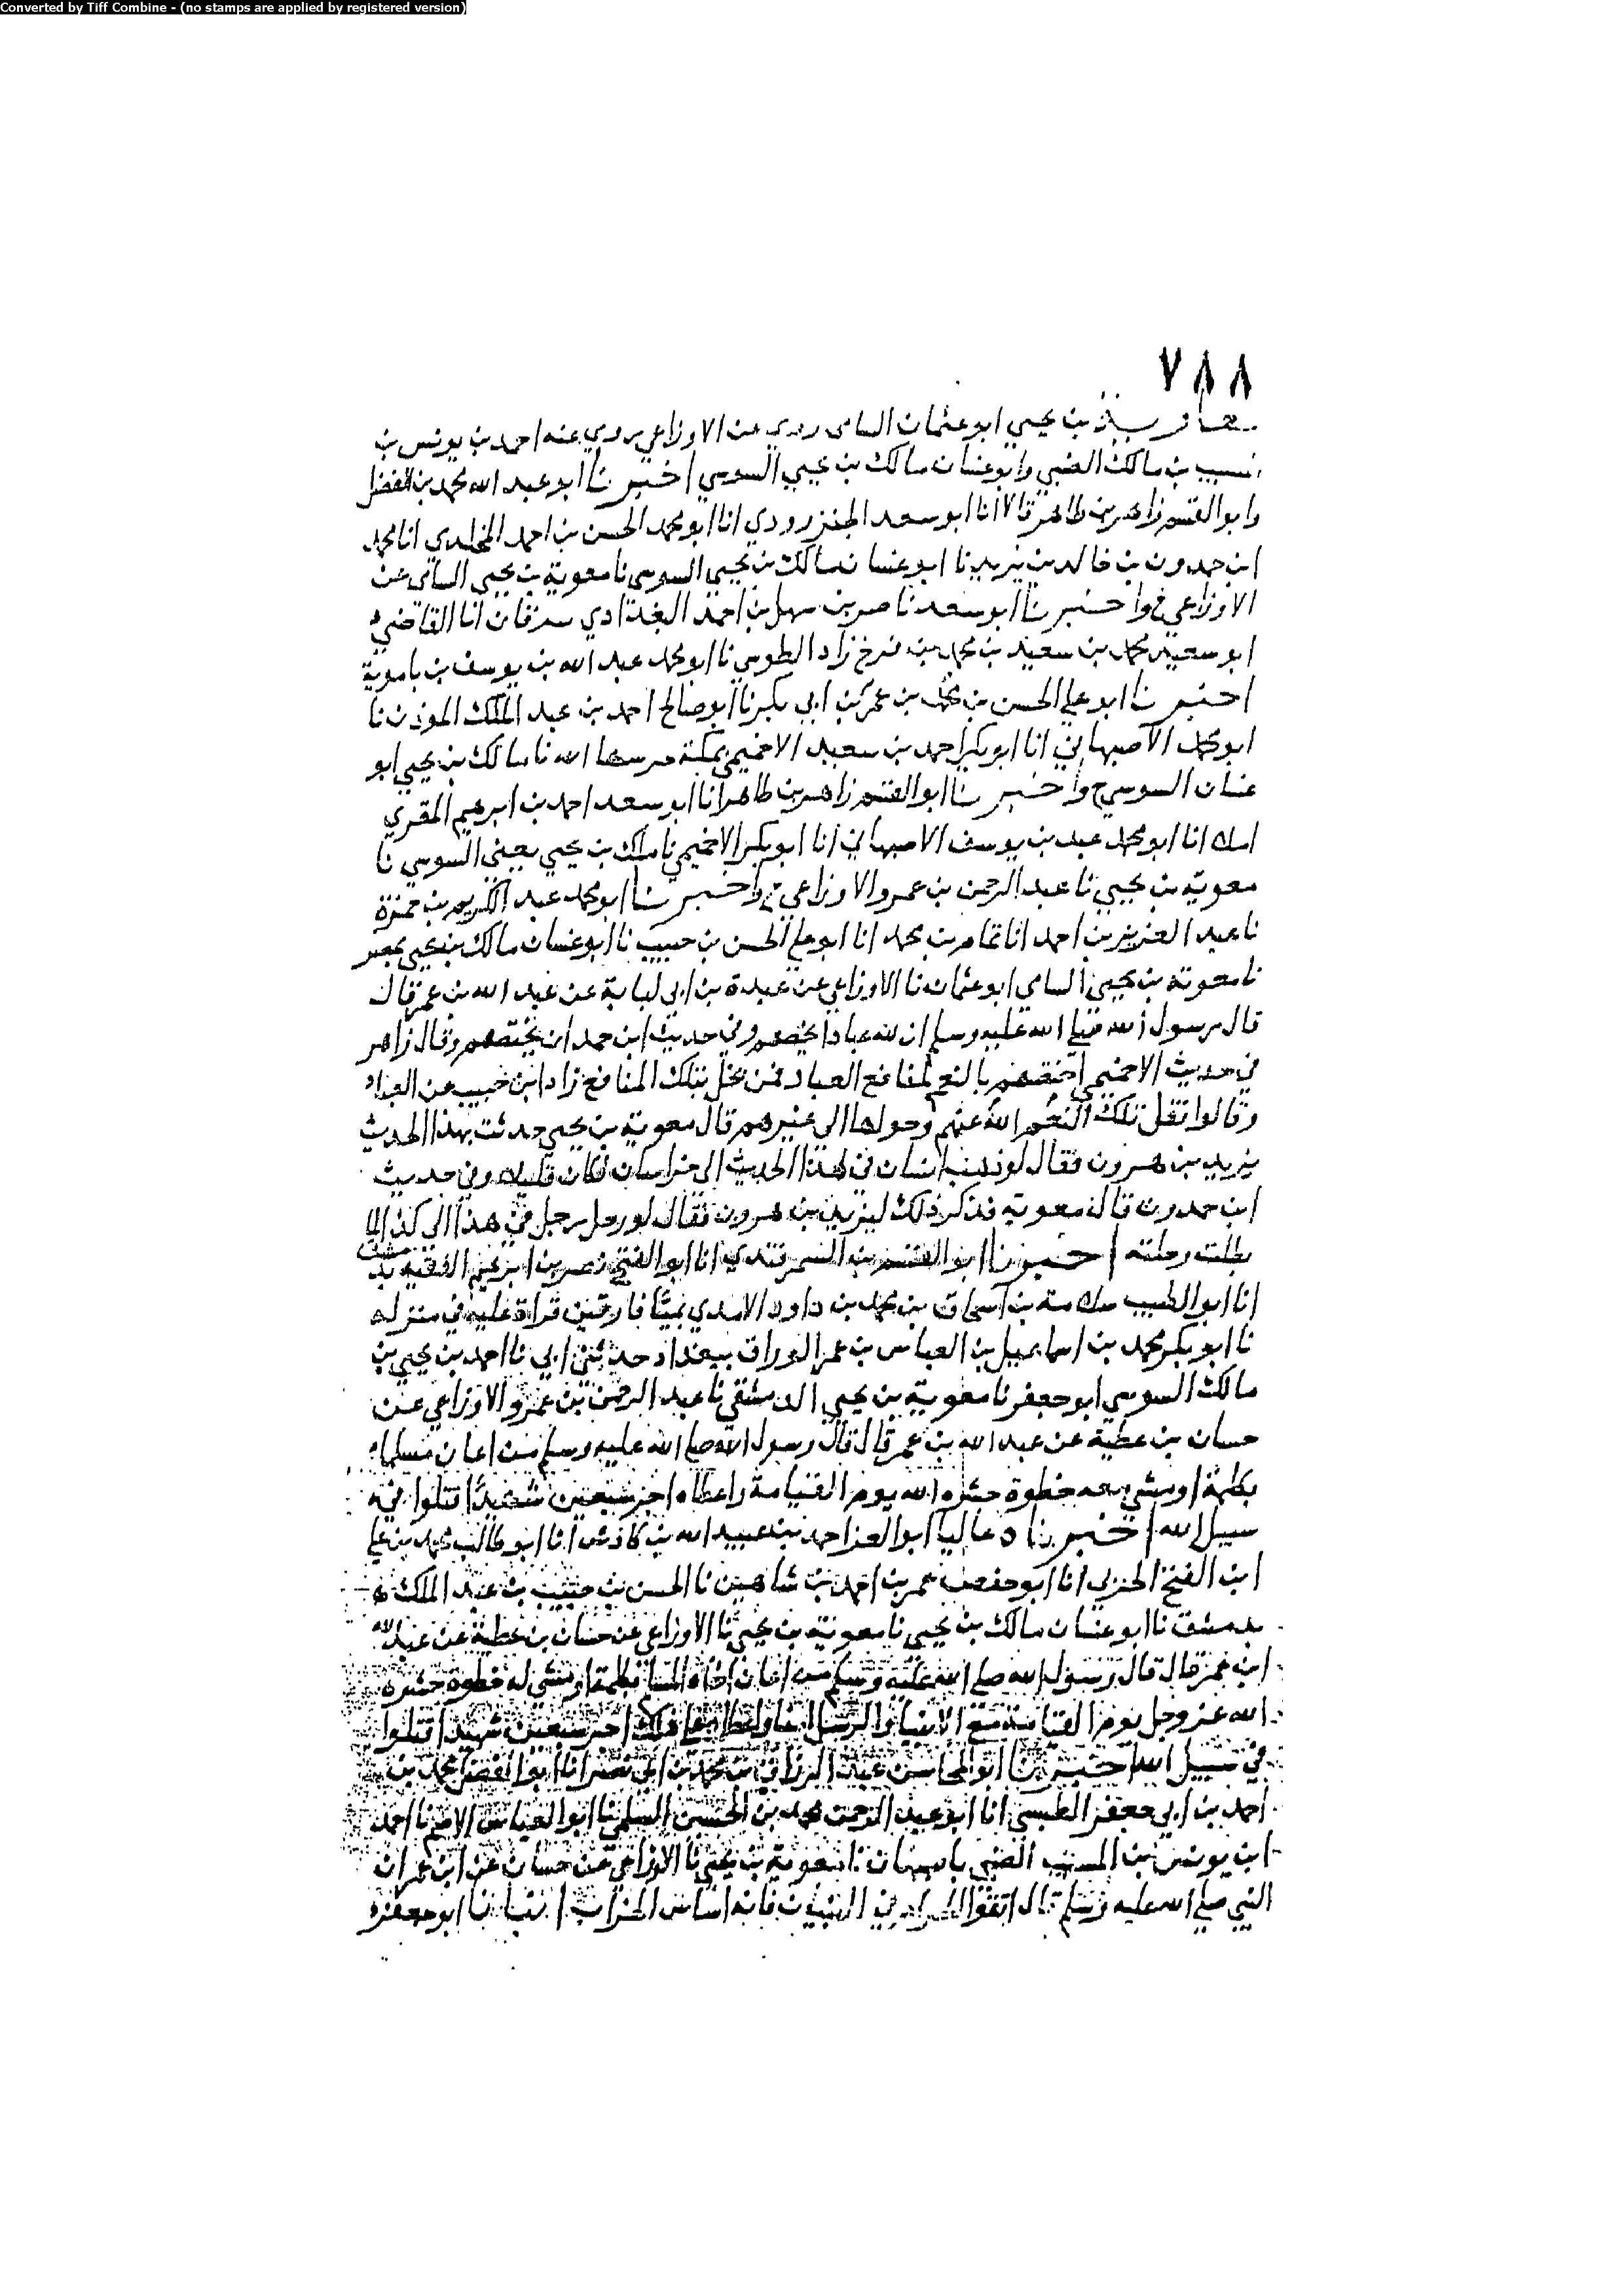 Converted by Tiff Combine - (no stamps are applied by registered version)
٧٨٨
معاوية بن يحيي ابو عثمان السامى روى عن الاوزاعي روي عنه احمد بن يونس بن
المسيب بن مالك الضبي وابو غسان مالك بن يحيي السوسي اخبرنا ابو عبد الله محمد بن الفضل
وابو القسم زاهر بن طاهر قالا انا ابو سعد الجنزرودي انا ابو محمد الحسن بن احمد المخلدي انا محمد
ابن حمدون بن خالد بن يزيد نا ابو غسان مالك بن يحيي السوسى نا معوية بن يحيي السامى عن
الاوزاعي ح واخبرنا ابو سعد ناصر بن سهل بن احمد البغدادي بنوقان انا القاضي
ابو سعيد محمد بن سعيد بن محمد بن فرخ زاد الطوسي نا ابو محمد عبد الله بن يوسف بن باموية
اخبرنا ابو علي الحسن بن محمد بن عمر بن ابي بكر نا ابو صالح احمد بن عبد الملك الموذن نا
ابو محمد الاصبهاني انا ابو بكر احمد بن سعيد الاخميمي بمكة حرسها الله نا مالك بن يحيي ابو
غسان السوسي ح واخبرنا ابو القسم زاهر بن طاهر انا ابو سعد احمد بن ابرهيم المقري
انا ابو محمد عبد بن يوسف الاصبهاني انا ابو بكر الاخميمي نا ملك بن يحيي يعني السوسي نا
معوية بن يحيي نا عبد الرحمن بن عمرو الاوزاعي ح واخبرنا ابو محمد عبد الكريم بن حمزة
نا عبد العزيز بن احمد انا تمام بن محمد انا ابو علي الحسن بن حبيب نا ابو غسان مالك بن يحيي بمصر
نا معوية بن يحيي السامي ابو عثمان نا الاوزاعي عن عبدة بن ابي لبابة عن عبد الله بن عمر قال
قال رسول الله صلي الله عليه وسلم ان لله عبادا يخصهم وفي حديث ابن حمدان يختصهم وقال زاهر
في حديث الاخميمي اختصهم بالنعم لمنافع العباد فمن بخل بتلك المنافع زاد ابن حبيب عن العباد
وقالوا نقل تلك النعم الله عنهم وحولها الى غيرهم قال معوية بن يحيي حدثت بهذا الحديث
يزيد بن هرون فقال لو ذهب انسان في هذا الحديث الى خراسان لكان قليلا وفي حديث
ابن حمدون قال معوية فذكر ذلك ليزيد بن هرون فقال لو رحل رجل في هذا الى كذا لما
بطلت رحلته اخبرنا ابو القسم بن السمرقندي انا ابو الفتح نصر بن ابرهيم الفقيه بدمشق
انا ابو الطيب سلامة بن اسحاق بن محمد بن داود الامدي بميافارقين قراة عليه في منزله
نا ابو بكر محمد بن اسماعيل بن العباس بن عمر الوراق ببغداد حدثني ابي نا احمد بن يحيي بن
مالك السوسي ابو جعفر نا معوية بن يحيي الدمشقي نا عبد الرحمن بن عمرو الاوزاعي عن
حسان بن عطية عن عبد الله بن عمر قال قال رسول الله صلي الله عليه وسلم من اعان مسلما
بكلمة او مشي معه خطوة حشره الله يوم القيامة واعطاه اجر سبعين شهيدا قتلوا في
سبيل الله اخبرناه عاليا ابو العز احمد بن عبيد الله بن كادش انا ابو طالب محمد بن علي
ابن الفتح الحربي انا ابو حفص عمر بن احمد بن شاهين نا الحسن بن حبيب بن عبد الملك
بدمشق نا ابو غسان مالك بن يحيي نا معوية بن يحيي نا الاوزاعي عن حسان بن عطية عن عبد الله
ابن عمر قال قال رسول الله صلي الله عليه وسلم من اعان اخاه المسلم بكلمة او مشى له خطوة حشره
الله عز وجل يوم القيامة مع الانبيا والرسل امنا واعطاه على ذلك اجر سبعين شهيدا قتلوا
في سبيل الله اخبرنا ابو المحاسن عبد الرزاق بن محمد بن ابي نصر انا ابو الفضل محمد بن
احمد بن ابي جعفر الطبسي انا ابو عبد الرحمن محمد بن الحسين السلمي نا ابو العباس الاصم نا احمد
ابن يونس بن المسيب الضبي باصبهان نا معوية بن يحيي نا الاوزاعي عن حسان عن ابن عمر ان
النبي صلي الله عليه وسلم قال اتقوا الحرام في البنيان فانه اساس الخراب انبانا ابو جعفر